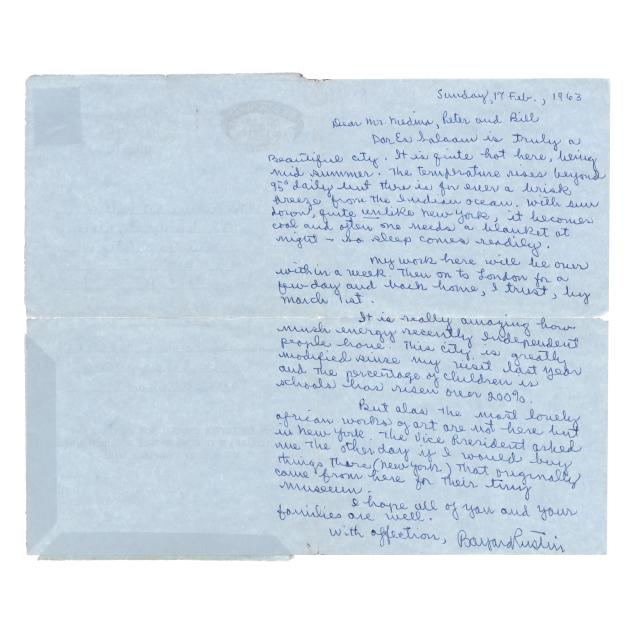 Sunday, 17 Feb., 1963
Dear Mr. Medina, Peter and Bill
Dar Es Salaam is truly a
Beautiful city. It is quite hot here, being
mid summer. The temperature rises beyond
95° daily but there is for ever a brisk
breeze from the Indian ocean. With sun
down, quite unlike New York, it becomes
cool and often one needs a blanket at
night – so sleep comes readily.
My work here will be over
within a week. Then on to London for a
few day and back home, I trust, by
March 1st.
It is really amazing how
much energy recently independent
people have. This city is greatly
modified since my visit last year
and the percentage of children in
schools has risen over 200%.
But alas the most lovely
african works of art are not here but
in New York. The Vice President asked
me the other day if I would buy
things there (New York) that originally
came from here for their tiny
museum.
I hope all of you and your
families are well.
With affection, Bayard Rustin